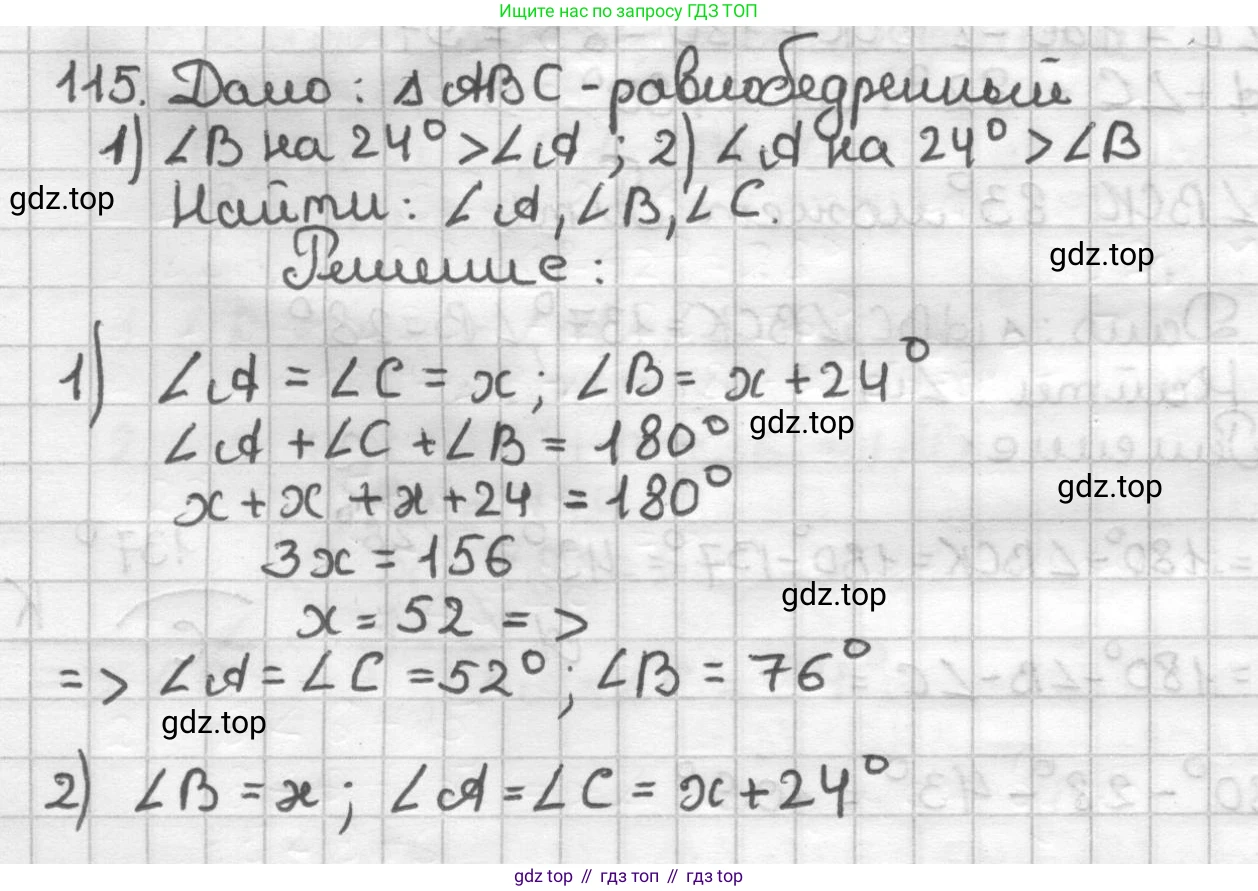 Ищите нас по запросу ГДЗ ТОП
115. Дано: Δ ABC - равнобедренный
1) ∠B на 24° > ∠A ; 2) ∠A на 24° > ∠B
gdz.top
Найти: ∠A, ∠B, ∠C.
gdz.top
Решение:
1) ∠A = ∠C = x ; ∠B = x + 24°
gdz.top
∠A + ∠C + ∠B = 180°
gdz.top
x + x + x + 24 = 180°
3x = 156
gdz.top
x = 52 = >
= > ∠A = ∠C = 52° ; ∠B = 76°
gdz.top
2) ∠B = x ; ∠A = ∠C = x + 24°
gdz.top // гдз топ // gdz.top